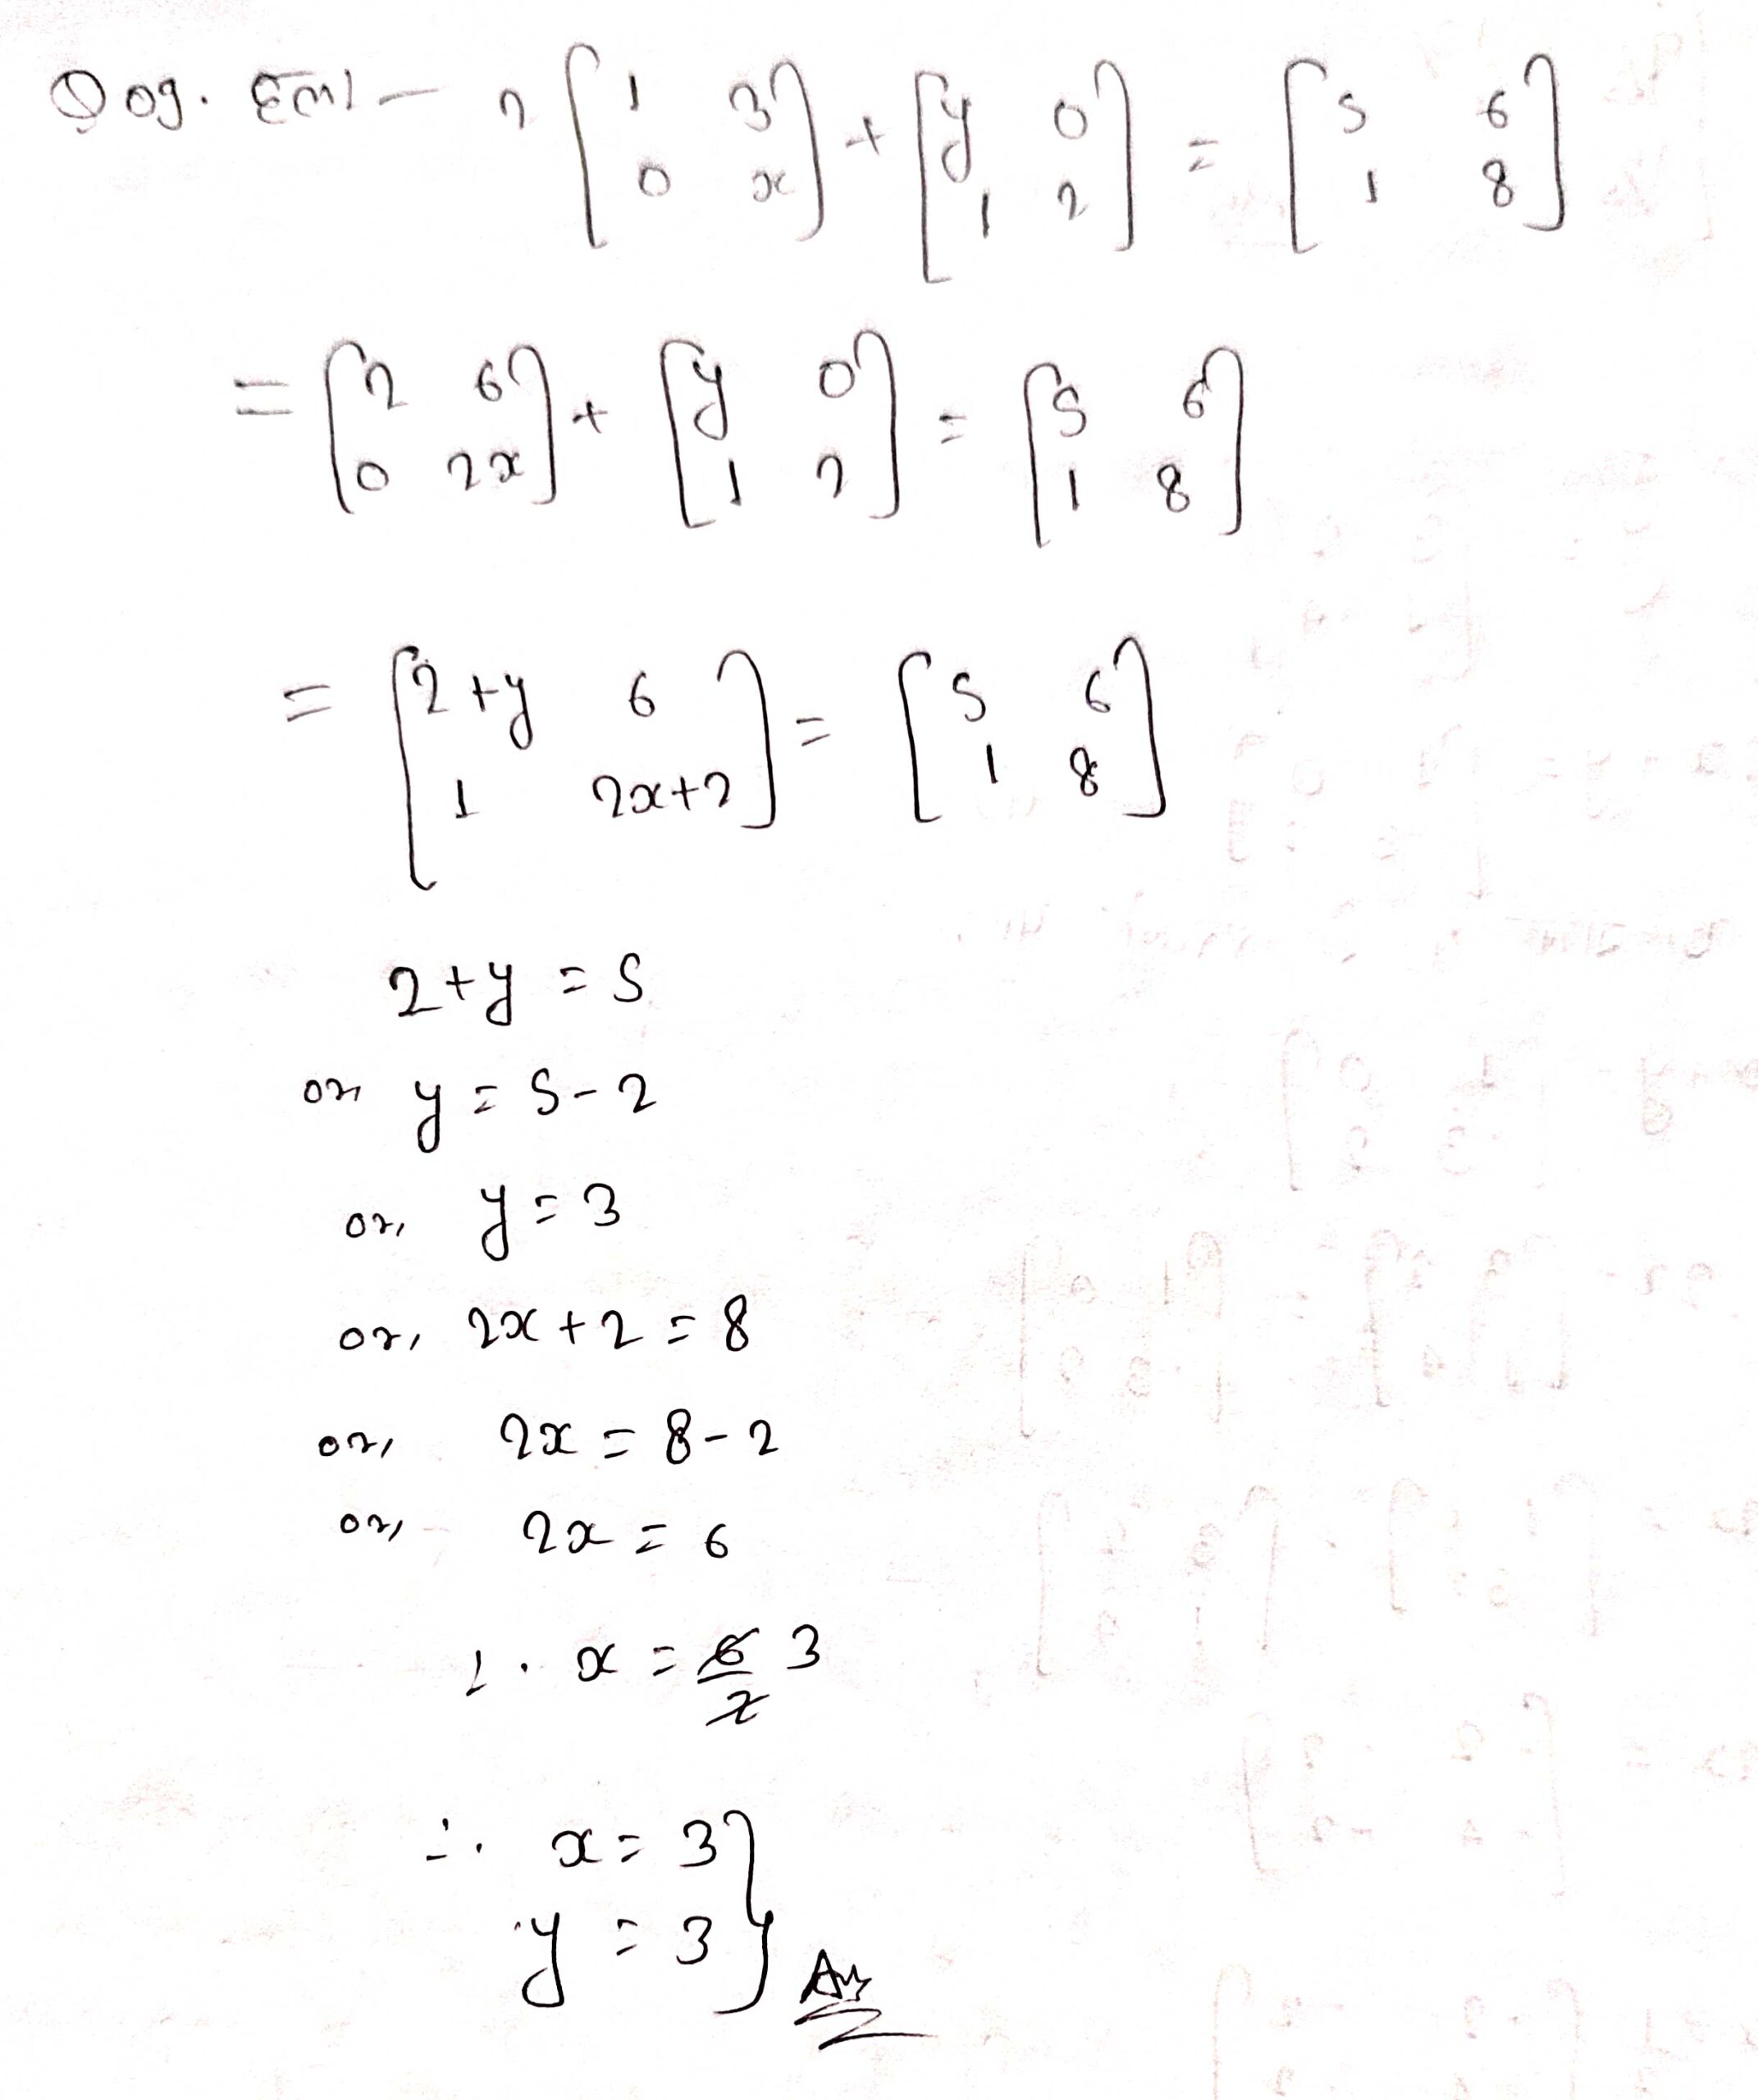 Q 09. 2 [1 3 0 x] + [y 0 1 2] = [5 6 1 8]
= [2 6 0 2x] + [y 0 1 2] = [5 6 1 8]
= [2+y 6 1 2x+2] = [5 6 1 8]
2+y = 5
or, y = 5-2
or, y = 3
or, 2x+2 = 8
or, 2x = 8-2
or, 2x = 6
∴ x = 6/2 3
∴ x = 3
y = 3 } Ans